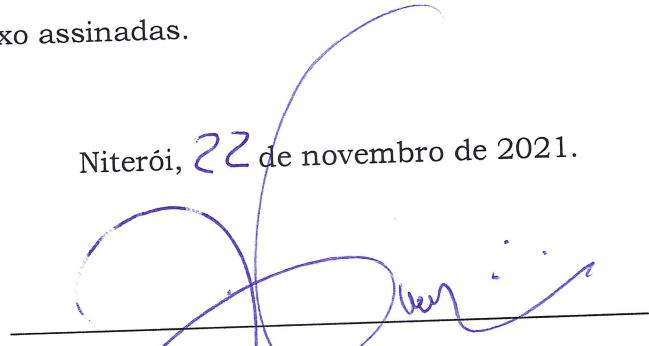 xo assinadas.
Niterói, 22 de novembro de 2021.